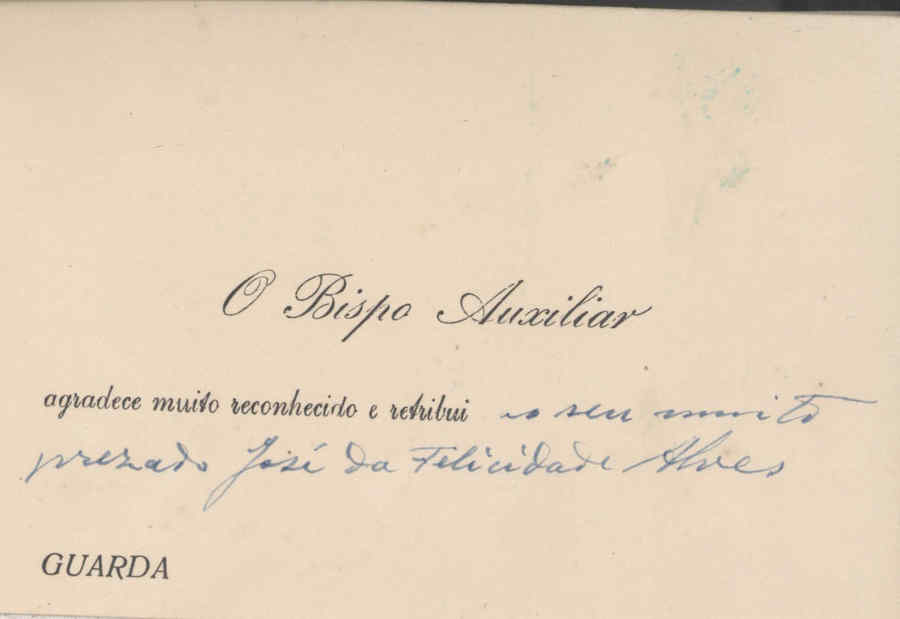 O Bispo Auxiliar
agradece muito reconhecido e retribui ao seu muito
prezado José da Felicidade Alves
GUARDA